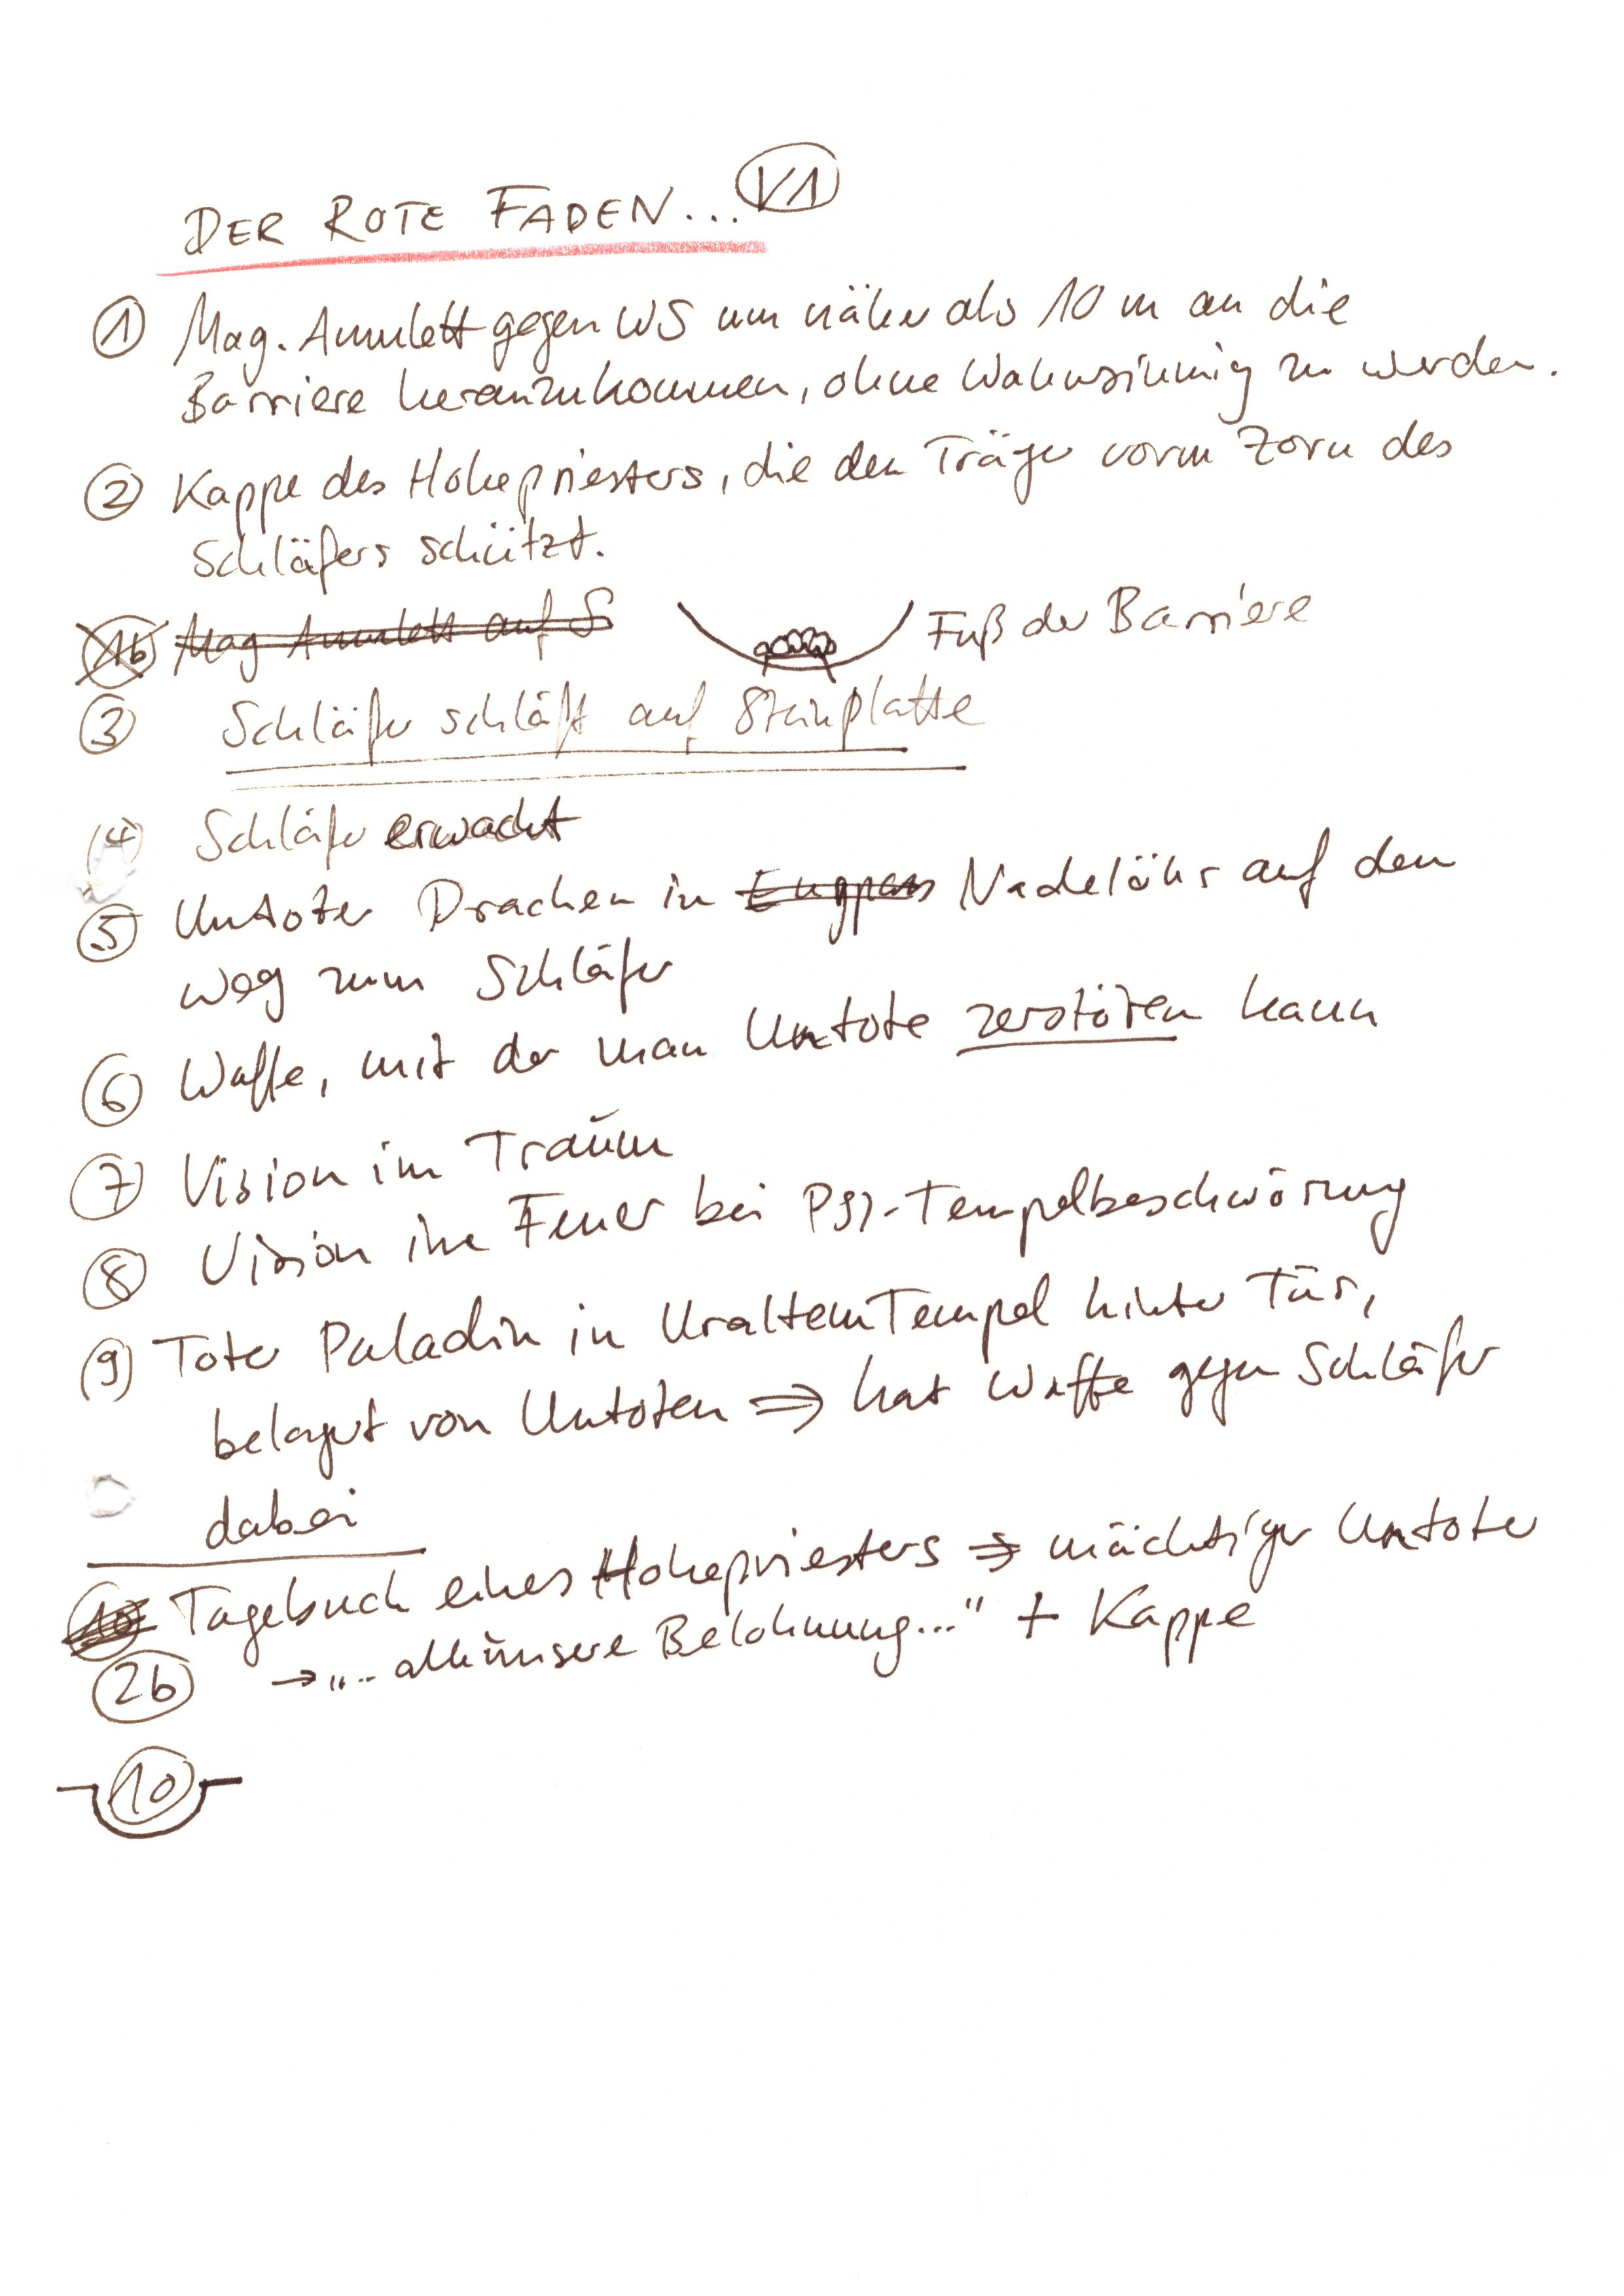 DER ROTE FADEN... V1
① Mag. Amulett gegen WS um näher als 10 m an die
Barriere heranzukommen, ohne Wahnsinnig zu werden.
② Kappe des Hohepriesters, die den Träger vorm Zorn des
Schläfers schützt.
1b Mag Amulett auf S
Fuß der Barriere
③ Schläfer schläft auf Steinplatte
④ Schläfer erwacht
⑤ Untoter Drachen in Engpass Nadelöhr auf den
Weg zum Schläfer
⑥ Waffe, mit der man Untote zerstören kann
⑦ Vision im Traum
⑧ Vision im Feuer bei PSI-Tempelbeschwörung
⑨ Toter Paladin in Uraltem Tempel hinter Tür,
belagert von Untoten ⇒ hat Waffe gegen Schläfer
dabei
10 Tagebuch eines Hohepriesters ⇒ mächtiger Untoter
2b → "... unsere Belohnung..." + Kappe
⑩